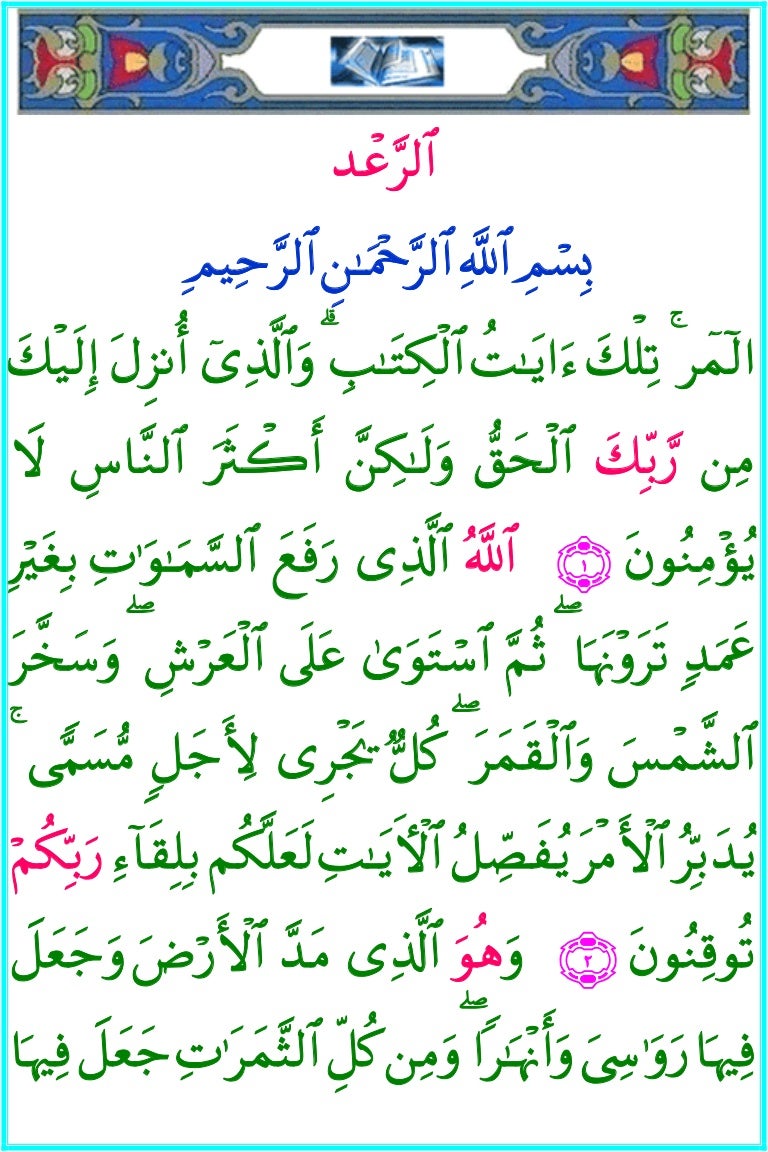 ٱلرَّعْد
بِسْمِ ٱللَّهِ ٱلرَّحْمَـٰنِ ٱلرَّحِيمِ
الٓمٓر ۚ تِلْكَ ءَايَـٰتُ ٱلْكِتَـٰبِ ۗ وَٱلَّذِىٓ أُنزِلَ إِلَيْكَ
مِن رَّبِّكَ ٱلْحَقُّ وَلَـٰكِنَّ أَكْثَرَ ٱلنَّاسِ لَا
يُؤْمِنُونَ ١ ٱللَّهُ ٱلَّذِى رَفَعَ ٱلسَّمَـٰوَٰتِ بِغَيْرِ
عَمَدٍ تَرَوْنَهَا ۖ ثُمَّ ٱسْتَوَىٰ عَلَى ٱلْعَرْشِ ۖ وَسَخَّرَ
ٱلشَّمْسَ وَٱلْقَمَرَ ۖ كُلٌّ يَجْرِى لِأَجَلٍ مُّسَمًّى ۚ
يُدَبِّرُ ٱلْأَمْرَ يُفَصِّلُ ٱلْأَيَـٰتِ لَعَلَّكُم بِلِقَآءِ رَبِّكُمْ
تُوقِنُونَ ٢ وَهُوَ ٱلَّذِى مَدَّ ٱلْأَرْضَ وَجَعَلَ
فِيهَا رَوَٰسِىَ وَأَنْهَـٰرًا ۖ وَمِن كُلِّ ٱلثَّمَرَٰتِ جَعَلَ فِيهَا